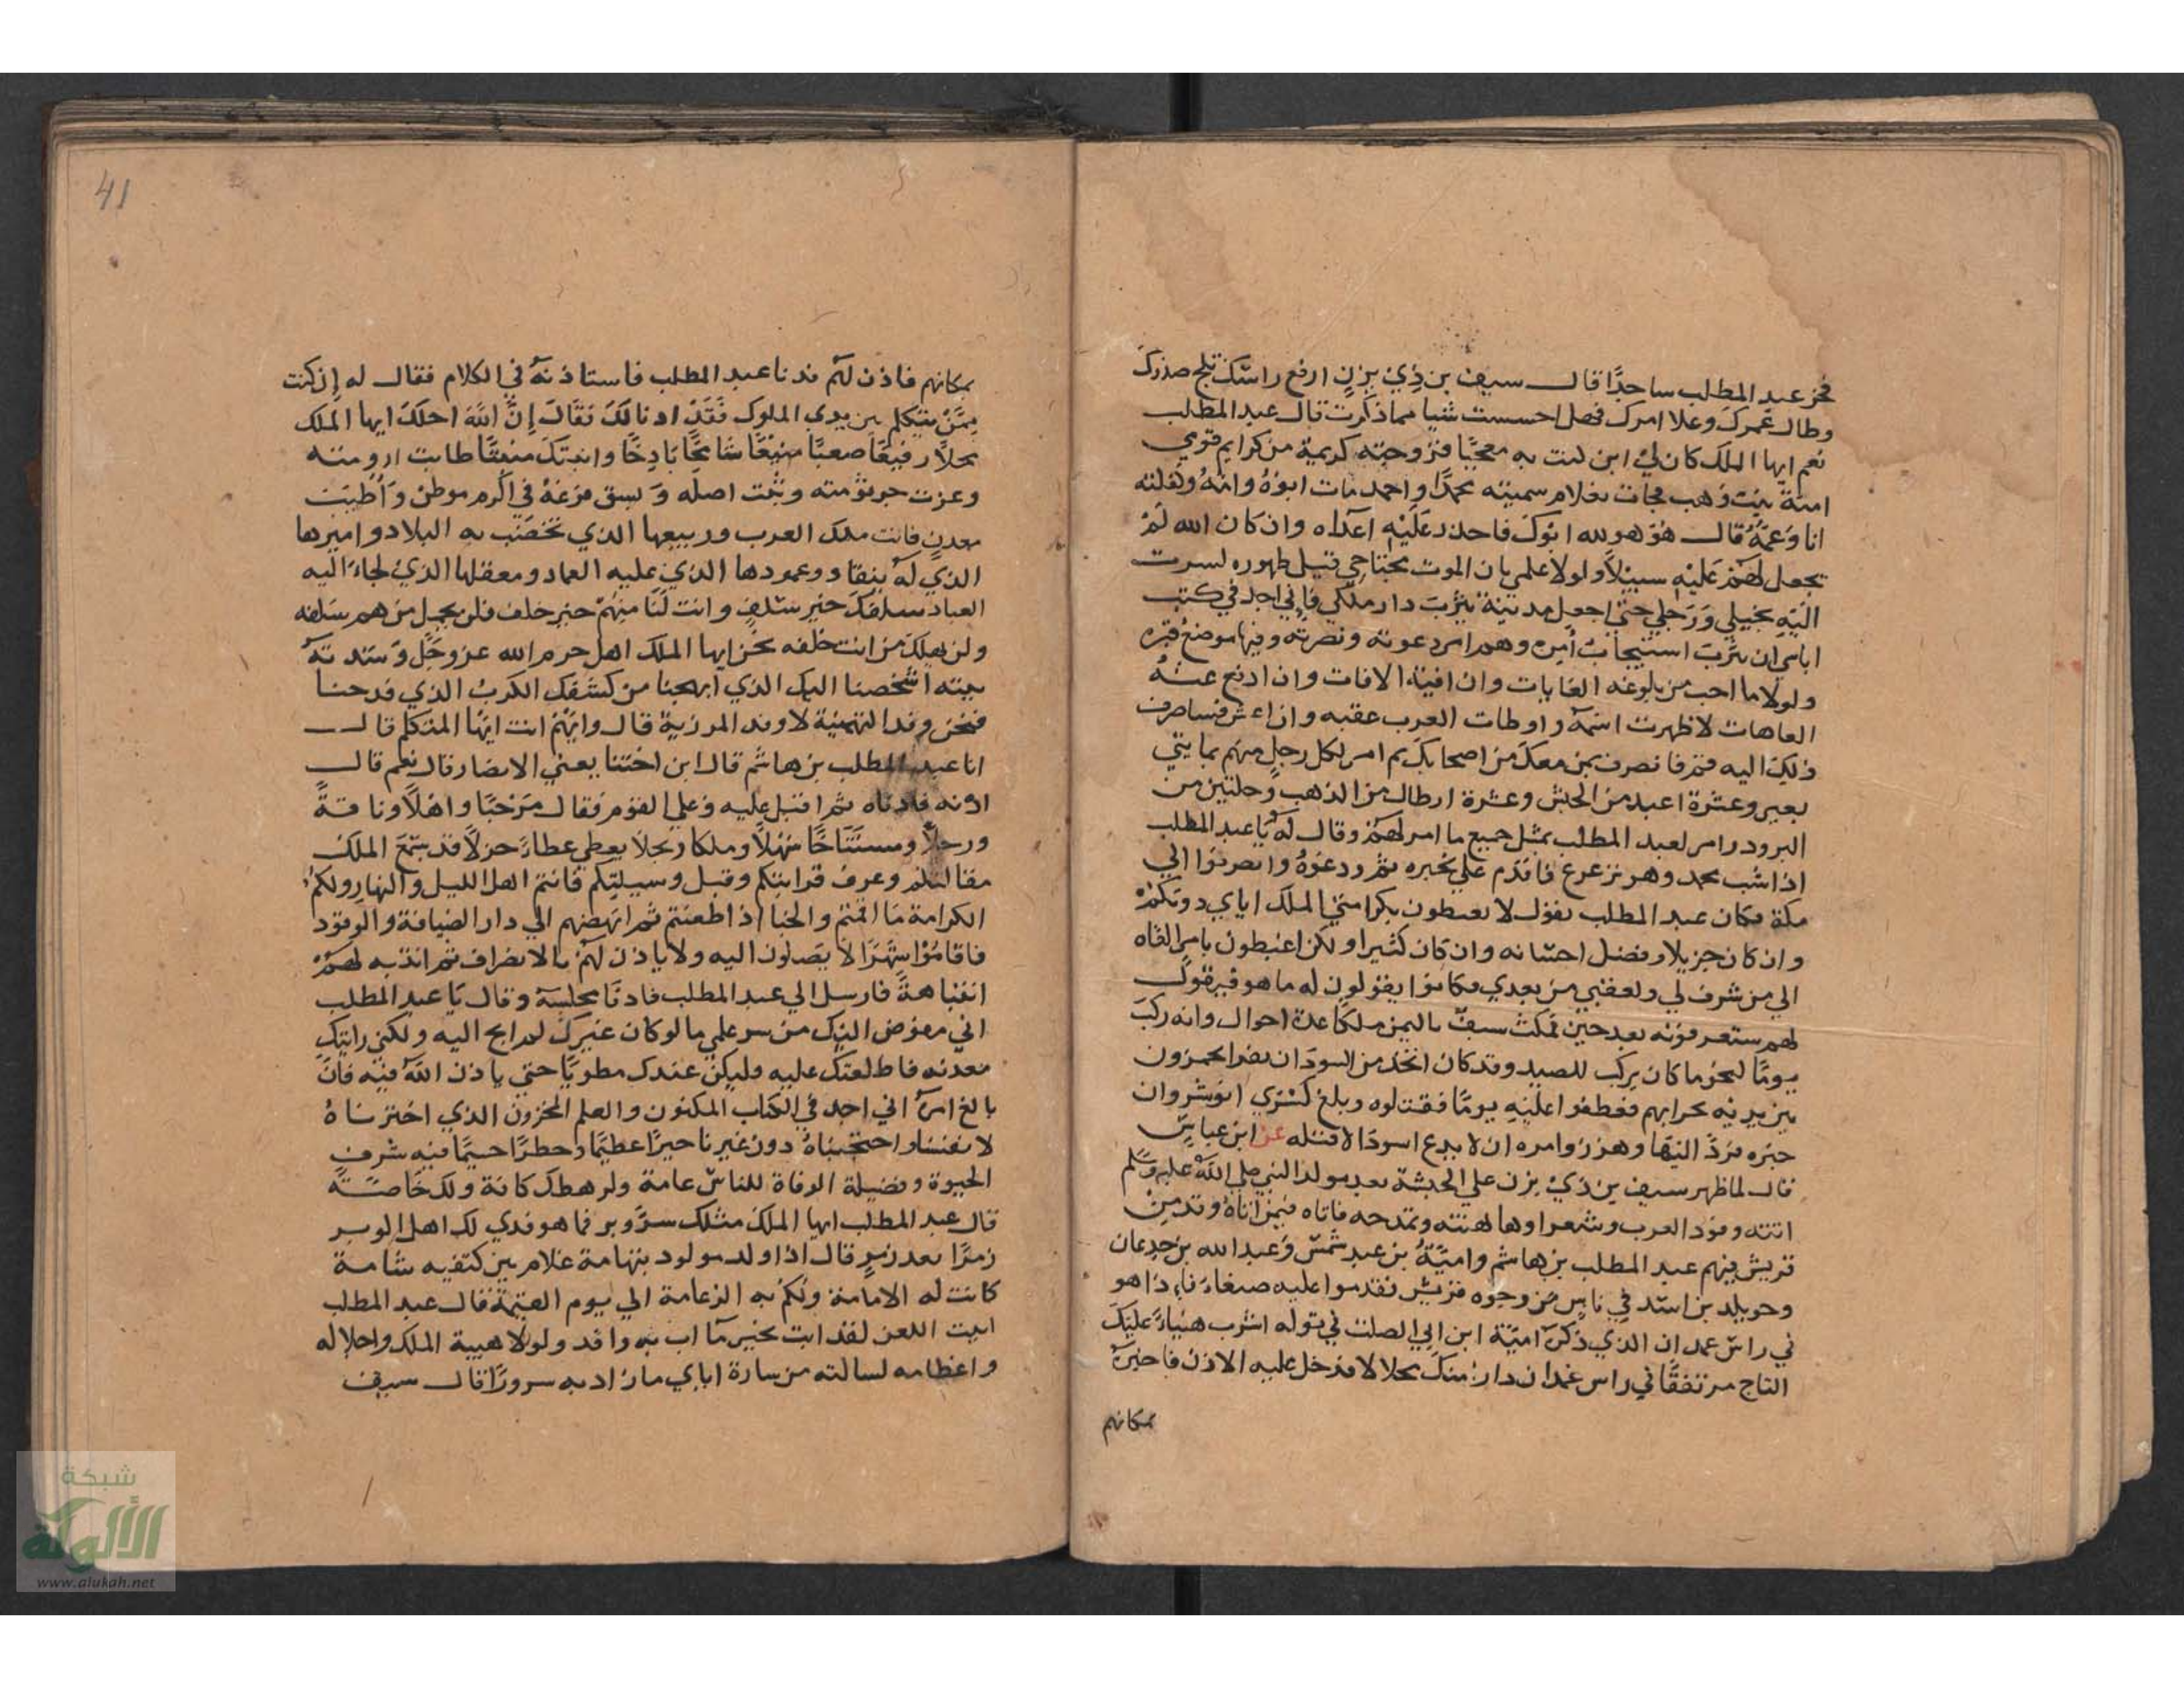 فخر عبد المطلب ساجدًا قال سيف بن ذي يزن ارفع راسك ثلج صدرك
وطال عمرك وعلا امرك فهل احسست شيا مما ذكرت قال عبد المطلب
نعم ايها الملك كان لي ابن كنت به معجبًا فزوجته كريمة من كرايم قومي
امنة بنت وهب فجات بغلام سميته محمدًا واحمد مات ابوه وامه وكفلته
انا وعمه قال هو هو لله ابوك فاحذر عليه اعداه وان كان الله لم
يجعل لهم عليه سبيلًا ولولا علمي بان الموت مجتاحي قبل ظهوره لسرت
اليه بخيلي ورجلي حتى اجعل مدينة يثرب دار ملكي فاني اجد في كتب
اباي ان يثرب استيجاب امره وهم امر دعوته ونصرته وفيها موضع قبره
ولولا ما احب من بلوغه الغايات وان اقيه الافات وان ادفع عنه
العاهات لاظهرت اسمه واوطات العرب عقبه وان اعش فساصرف
ذلك اليه قم فانصرف بمن معك من اصحابك ثم امر لكل رجل منهم بمايتي
بعير وعشرة اعبد من الحبش وعشرة ارطال من الذهب وحلتين من
البرود وامر لعبد المطلب بمثل جميع ما امر لهم وقال له يا عبد المطلب
اذا شب محمد وهو ترعرع فاقدم علي بخبره ثم ودعوه وانصرفوا الي
مكة فكان عبد المطلب يقول لا تغبطون بكرامتي الملك اياي دونكم
وان كان جزيلا وفضل احسانه وان كان كثيرا ولكن اغبطون بامر القاه
الي من شرف لي ولعقبي من بعدي فكانوا يقولون له ما هو فيقول
لهم ستعرفونه بعد حين فمكث سيف باليمن ملكًا عدة احوال وانه ركب
يومًا كنحو ما كان يركب للصيد وقد كان اتخذ من السودان نفرا يحمزون
بين يديه بحرابهم فعطفوا عليه يومًا فقتلوه وبلغ كسرى انوشروان
خبره فرد اليها وهرز وامره ان لا يدع اسودًا الا قتله عن ابن عباس
قال لما ظهر سيف بن ذي يزن علي الحبشة بعد مولد النبي صلى الله عليه وسلم
اتته وفود العرب وشعراوها لهنته وتمدحه فاتاه فيمن اتاه وفد من
قريش فيهم عبد المطلب بن هاشم وامية بن عبد شمس وعبد الله بن جدعان
وخويلد بن اسد في ناس من وجوه قريش فقدموا عليه صنعاء فاذا هو
في راس غمدان الذي ذكره امية ابن ابي الصلت في قوله اشرب هنياء عليك
التاج مرتفقًا في راس غمدان دار منك محلالا فدخل عليه الاذن فاخبره
بمكانهم
41
بمكانهم فاذن لهم فدنا عبد المطلب فاستاذنه في الكلام فقال له ان كنت
ممن يتكلم بين يدي الملوك فقد اذنا لك فقال ان الله احلك ايها الملك
محلًا رفيعًا صعبًا منيعًا شامخًا باذخًا وانبتك منبتًا طابت ارومته
وعزت جرثومته وثبت اصله وبسق فرعه في اكرم موطن واطيب
معدن فانت ملك العرب وربيعها الذي تخصب به البلاد واميرها
الذي له ينقاد وعمودها الذي عليه العماد ومعقلها الذي لجاء اليه
العباد سلفك خير سلف وانت لنا منهم خير خلف فلن يجهل من هم سلفه
ولن يهلك من انت خلفه نحن ايها الملك اهل حرم الله عز وجل وسدنة
بيته اشخصنا اليك الذي ابهجنا من كشفك الكرب الذي فدحنا
فنحن وفد التهنية لا وفد المرزية قال وايهم انت ايها المتكلم قال
انا عبد المطلب بن هاشم قال ابن اختنا يعني الانصار قال نعم قال
ادنه فادناه ثم اقبل عليه وعلى القوم فقال مرحبًا واهلًا وناقةً
ورحلًا ومستناخًا سهلًا وملكا ربحلا يعطي عطاءً جزلًا قد سمع الملك
مقالتكم وعرف قرابتكم وقبل وسيلتكم فانتم اهل الليل والنهار ولكم
الكرامة ما اقمتم والحبا اذا ظعنتم ثم انهضهم الي دار الضيافة والوفود
فاقاموا شهرًا لا يصلون اليه ولا ياذن لهم بالانصراف ثم انتبه لهم
انتباهةً فارسل الي عبد المطلب فادنا مجلسه وقال يا عبد المطلب
اني مفوض اليك من سر علمي ما لو كان غيرك لم ابح اليه ولكني رايتك
معدنه فاطلعتك عليه وليكن عندك مطويًا حتي ياذن الله فيه فان
بالغ امره اني اجد في الكتاب المكنون والعلم المخزون الذي اخترناه
لانفسنا واحتجبناه دون غيرنا خيرًا عظيمًا وخطرًا جسيمًا فيه شرف
الحيوة وفضيلة الوفاة للناس عامة ولرهطك كافة ولك خاصة
قال عبد المطلب ايها الملك مثلك سر وبر فما هو فدي لك اهل الوبر
زمرًا بعد زمر قال اذا ولد مولود بتهامة غلام بين كتفيه شامة
كانت له الامامة ولكم به الزعامة الي يوم القيمة قال عبد المطلب
ابيت اللعن لقد ابت بخير ما اب به وافد ولولا هيبة الملك واجلاله
واعظامه لسالته من سارة اباي ما ازاد به سرورًا قال سيف
شبكة
الألوكة
www.alukah.net